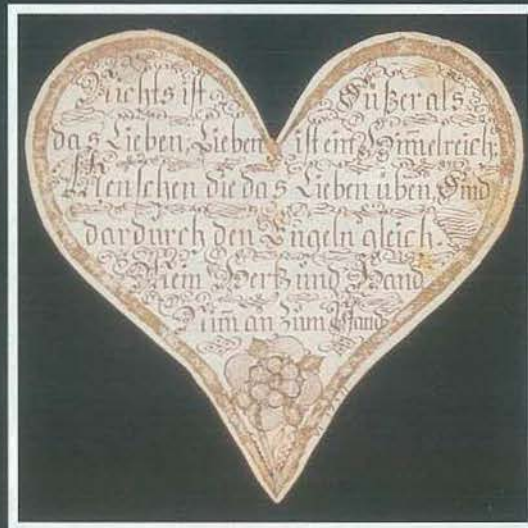 Nichts ist Süßer als
das Lieben; Lieben ist ein Him̄elreich;
Menschen die das Lieben üben, Sind
dardurch den Engeln gleich.
Mein Hertz und Hand
Nim̄ an zum Pfand